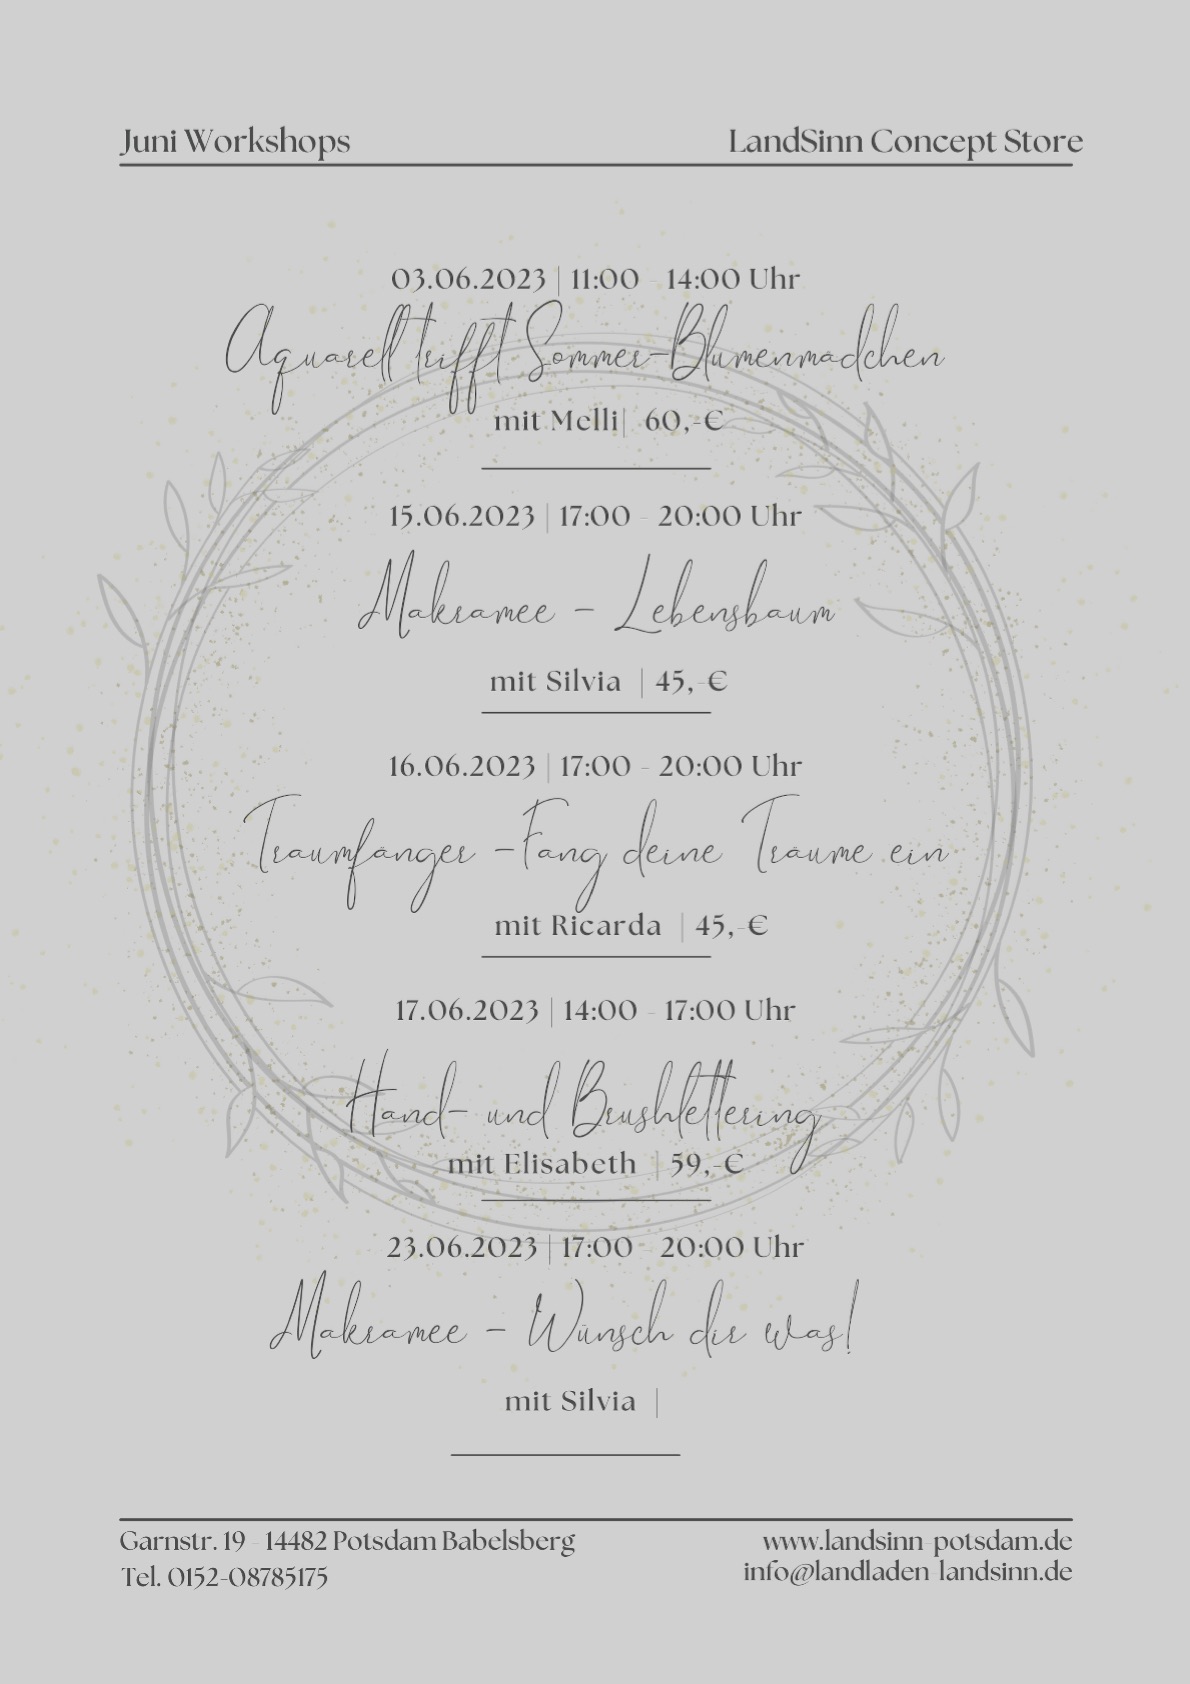 Juni Workshops
LandSinn Concept Store
03.06.2023 | 11:00 - 14:00 Uhr
Aquarell trifft Sommer-Blumenmädchen
mit Melli| 60,-€
15.06.2023 | 17:00 - 20:00 Uhr
Makramee - Lebensbaum
mit Silvia | 45,-€
16.06.2023 | 17:00 - 20:00 Uhr
Traumfänger -Fang deine Träume ein
mit Ricarda | 45,-€
17.06.2023 | 14:00 - 17:00 Uhr
Hand- und Brushlettering
mit Elisabeth | 59,-€
23.06.2023 | 17:00 - 20:00 Uhr
Makramee - Wünsch dir was!
mit Silvia |
Garnstr. 19 - 14482 Potsdam Babelsberg
Tel. 0152-08785175
www.landsinn-potsdam.de
info@landladen-landsinn.de